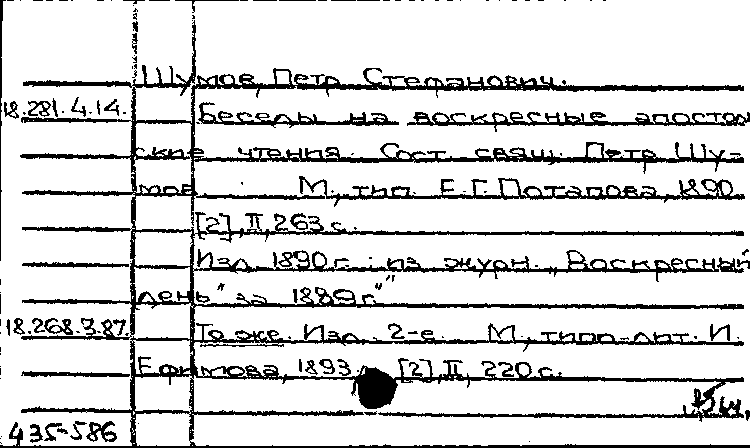 Шумов, Петр Стефанович.
18.281.4.14. Беседы на воскресные апостол
ские чтения. Сост. свящ. Петр Шу-
мов. М., тип. Е.Г. Потапова, 1890
[2], II, 263 с.
Изд. 1890 г.: из журн. „Воскресный
день" за 1889 г."
18.268.3.87. То же. Изд. 2-е. М., типо-лит. И.
Ефимова, 1893. [2], II, 220 с.
435-586